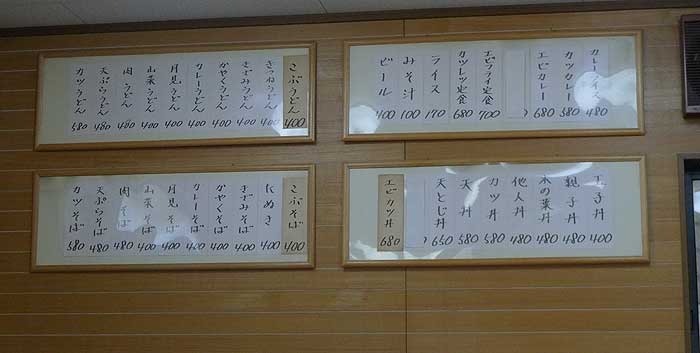 こぶうどん 400
きつねうどん 400
きざみうどん 400
かやくうどん 400
カレーうどん 400
月見うどん 400
山菜うどん 400
肉うどん 400
天ぷらうどん 480
カツうどん 580
カレーライス 480
カツカレー 580
エビカレー 680
エビフライ定食 700
カツレツ定食 680
ライス 170
みそ汁 100
ビール 400
こぶそば 400
たぬき 400
きざみそば 400
かやくそば 400
カレーそば 400
月見そば 400
山菜そば 480
肉そば 480
天ぷらそば 480
カツそば 580
玉子丼 400
親子丼 480
木の葉丼 480
他人丼 480
カツ丼 580
天丼 580
天とじ丼 650
エビカツ丼 680